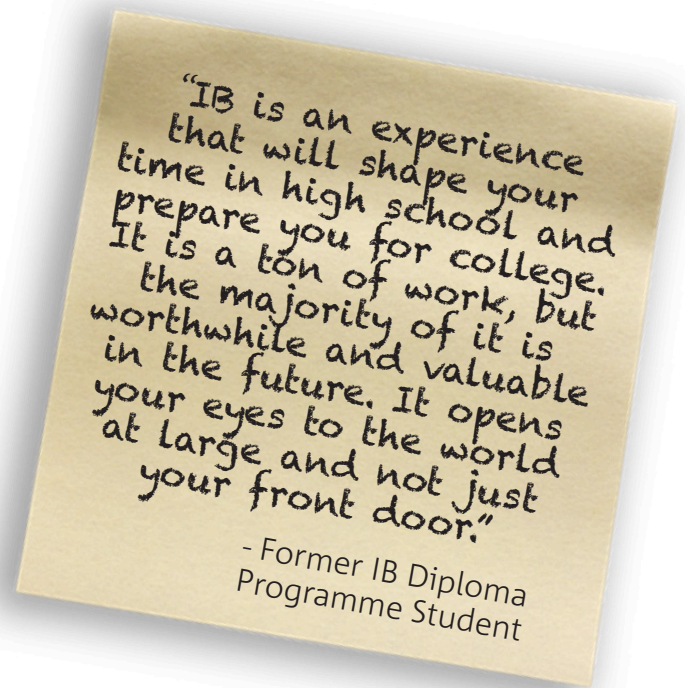 “IB is an experience
that will shape your
time in high school and
prepare you for college.
It is a ton of work, but
the majority of it is
worthwhile and valuable
in the future. It opens
your eyes to the world
at large and not just
your front door.”
- Former IB Diploma
Programme Student